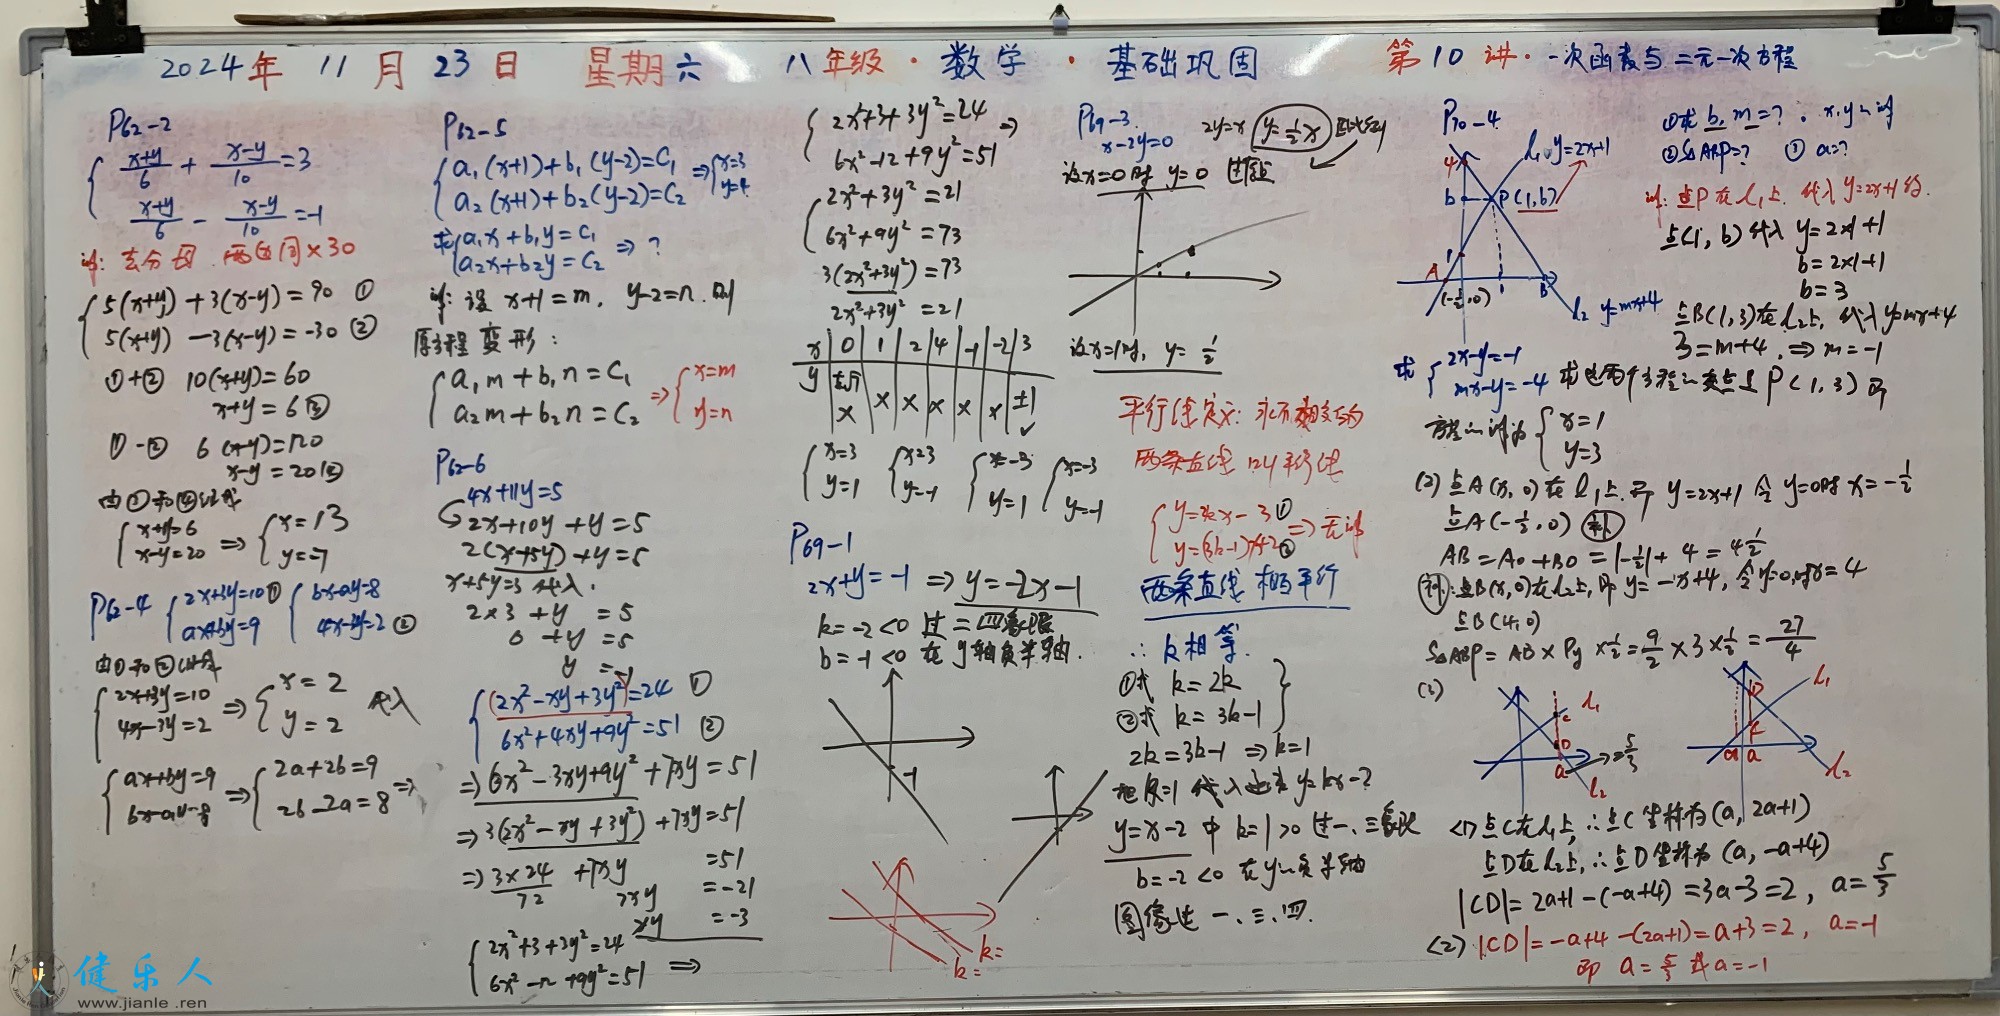 2024年 11月 23日 星期六 八年级·数学·基础巩固 第10讲·一次函数与二元一次方程
P62-2
{ (x+y)/6 + (x-y)/10 = 3
(x+y)/6 - (x-y)/10 = -1
解: 去分母 两边同×30
{ 5(x+y)+3(x-y)=90 ①
5(x+y)-3(x-y)=-30 ②
①+② 10(x+y)=60
x+y=6 ③
①-② 6(x-y)=120
x-y=20
{ x+y=6
x-y=20 ⇒ { x=13
y=-7
P62-4 { 2x+3y=10 ①
ax+by=9
{ bx-ay=8
4x-3y=2 ②
{ 2x+3y=10
4x-3y=2 ⇒ { x=2
y=2 代入
{ ax+by=9
bx-ay=8 ⇒ { 2a+2b=9
2b-2a=8 ⇒
P62-5
{ a₁(x+1)+b₁(y-2)=C₁
a₂(x+1)+b₂(y-2)=C₂ ⇒ { x=3
y=4
求{ a₁x+b₁y=C₁
a₂x+b₂y=C₂ ⇒ ?
解: 设 x+1=m, y-2=n. 则
原方程变形:
{ a₁m+b₁n=C₁
a₂m+b₂n=C₂ ⇒ { x=m
y=n
P62-6
4x+11y=5
2x+10y+y=5
2(x+5y)+y=5
x+5y=3 代入.
2×3+y=5
6+y=5
y=-1
{ (2x²-xy+3y²)=24 ①
6x²+4xy+9y²=51 ②
⇒ 6x²-3xy+9y²+7xy=51
⇒ 3(2x²-xy+3y²)+7xy=51
⇒ 3×24+7xy=51
72 7xy=-21
xy=-3
{ 2x²+3+3y²=24
6x²-12+9y²=51 ⇒
{ 2x²+3+3y²=24
6x²-12+9y²=51 ⇒
{ 2x²+3y²=21
6x²+9y²=73
3(2x²+3y²)=73
2x²+3y²=21
x 0 1 2 4 -1 -2 3
y × × × × × × ±1 ✓
{ x=3
y=1
{ x=3
y=-1
{ x=-3
y=1
{ x=-3
y=-1
P69-1
2x+y=-1 ⇒ y=-2x-1
k=-2<0 过二四象限
b=-1<0 在y轴负半轴.
-1
k=
k=
P69-3
x-2y=0 2y=x y=½x
设x=0时 y=0
设x=1时, y=½
平行线定义: 永不相交的
两条直线 叫平行线
y=(3k-1)x+2 ② ⇒ 无解
两条直线相平行
∴ k相等.
①式 k=2k
②式 k=3k-1
2k=3k-1 ⇒ k=1
把k=1代入
y=x-2 中 k=1>0 过一、三象限
b=-2<0 在y轴负半轴
图像过 一、三、四.
P70-4
l₁ y=2x+1
4
b P(1,b)
1
A (-½,0) 1 B
l₂ y=mx+4
①求 b, m=?
②S△ABP=? ③ a=?
解: 点P在l₁上. 代入y=2x+1的.
点(1,b)代入 y=2x+1
b=2×1+1
b=3
点B(1,3)在l₂上, 代入y=mx+4
3=m+4, ⇒ m=-1
求{ 2x-y=-1
mx-y=-4 求这两个方程的交点是P(1,3)即
方程的解为 { x=1
y=3
(2) 点A(x,0)在l₁上 即 y=2x+1 令 y=0时 x=-½
点A(-½,0) 补
AB=AO+BO=|-½|+4=4½
补: 点B(x,0)在l₂上,即 y=-x+4, 令y=0,时x=4
点B(4,0)
S△ABP=AB×Py×½=9/2×3×½=27/4
(3)
l₁
C
D
a
l₂
5/3
D
C
a
a
l₁
l₂
<1> 点C在l₁上, ∴点C坐标为(a, 2a+1)
点D在l₂上, ∴点D坐标为(a, -a+4)
|CD|=2a+1-(-a+4)=3a-3=2, a=5/3
<2> |CD|=-a+4-(2a+1)=a+3=2, a=-1
即 a=5/3 或 a=-1
健乐人
www.jianle.ren